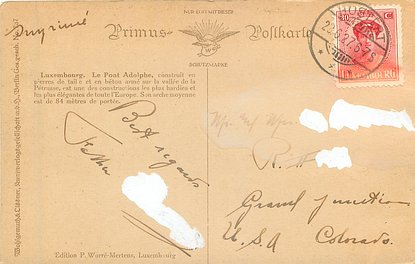 Imprimé
M.P. EINGETR.
Primus-Postkarte
SCHUTZMARKE
Luxembourg. Le Pont Adolphe, construit en
pierres de taille et en béton armé sur la vallée de la
Pétrusse, est une des constructions les plus hardies et
les plus élégantes de toute l'Europe. Son arche moyenne
est de 84 mètres de portée.
Best regards
Mr. and Mrs.
Grand Junction
U.S.A Colorado.
Edition P. Worré-Mertens, Luxembourg
LUXEMBOURG